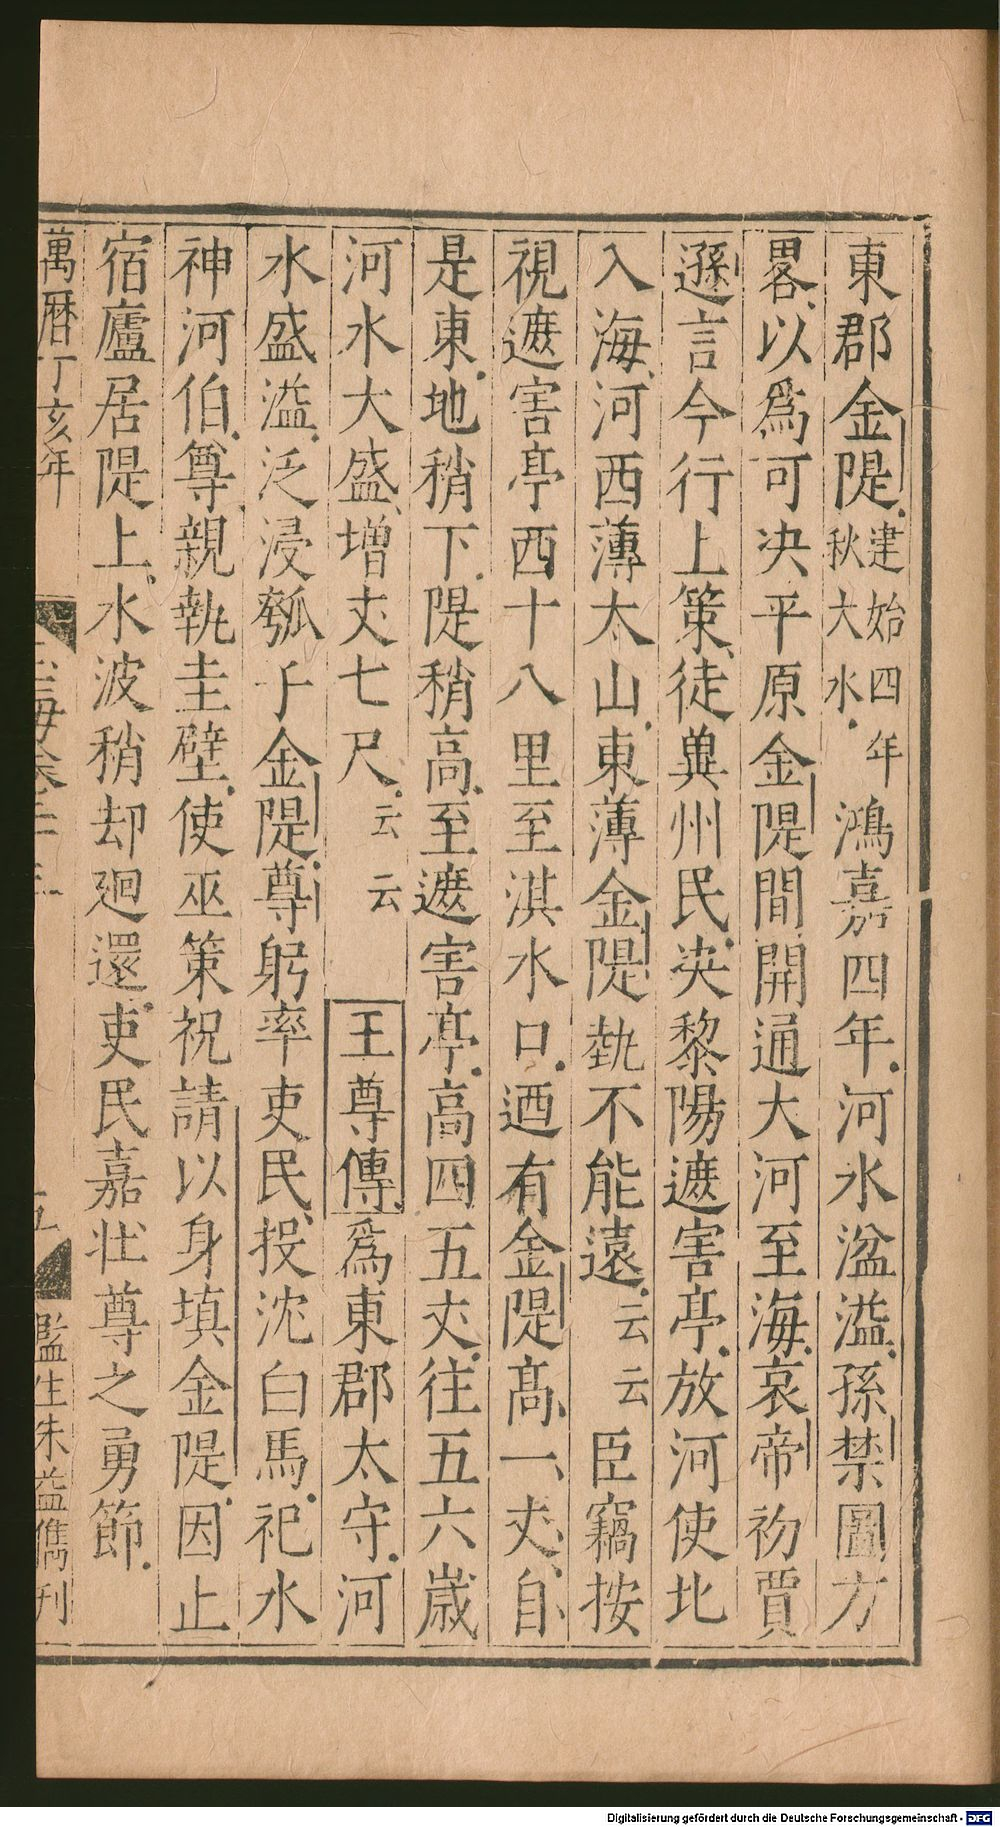 東郡金隄建始四年秋大水鴻嘉四年河水湓溢孫禁圖方
畧以爲可决平原金隄間開通大河至海哀帝初賈
遜言今行上策徒兾州民决黎陽遮害亭放河使北
入海河西薄太山東薄金隄埶不能遠云云 臣竊按
視遮害亭西十八里至淇水口廼有金隄高一丈自
是東地稍下隄稍高至遮害亭高四五丈往五六歲
河水大盛增丈七尺云云 王尊傳爲東郡太守河
水盛溢泛浸瓠子金隄尊躬率吏民投沈白馬祀水
神河伯尊親執圭璧使巫策祝請以身填金隄因止
宿廬居隄上水波稍却廻還吏民嘉壯尊之勇節
萬曆丁亥年
玉海卷二十三
五
監生朱益儁刊
Digitalisierung gefördert durch die Deutsche Forschungsgemeinschaft - DFG